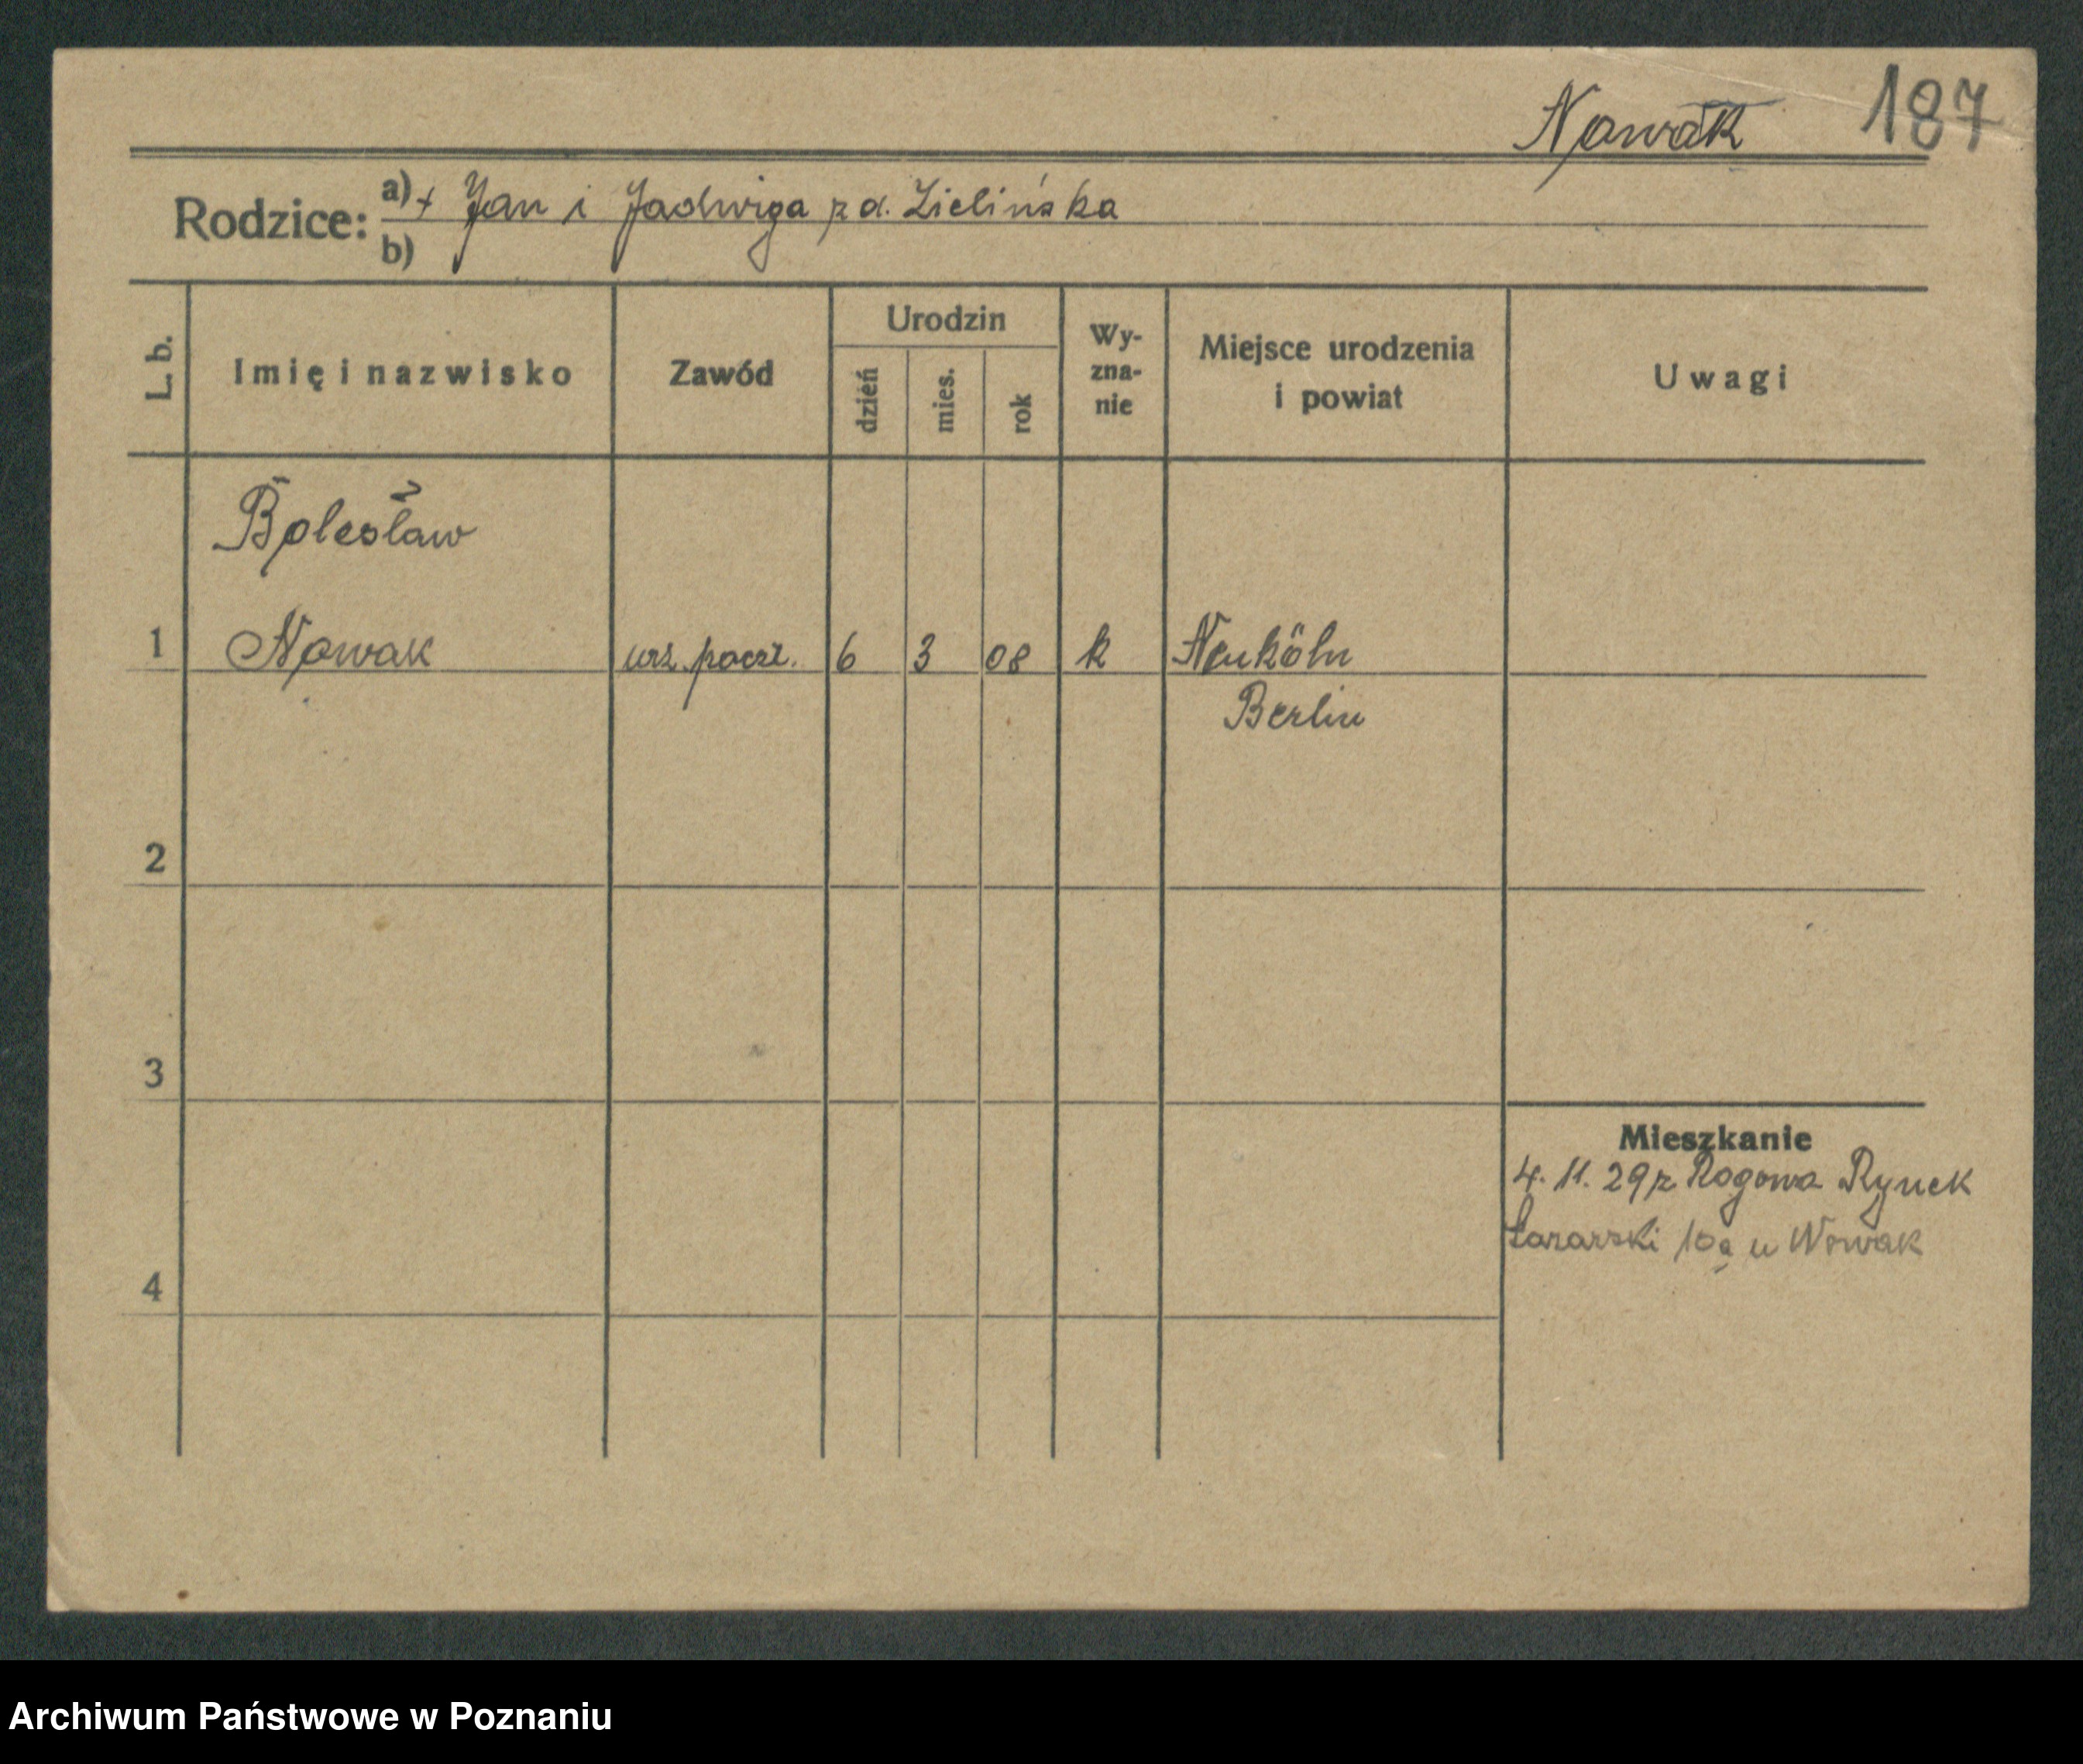 Nowak 187
Rodzice: a) + Jan i Jadwiga z d. Zielińska
b)
L. b. Imię i nazwisko Zawód Urodzin dzień mies. rok Wy-zna-nie Miejsce urodzenia i powiat Uwagi
Bolesław
1 Nowak urz. poczt. 6 3 08 k Neuköln
Berlin
2
3
Mieszkanie
4. 11. 29 z Rogowa Rynek
Łazarski 10a u Nowak
4
Archiwum Państwowe w Poznaniu